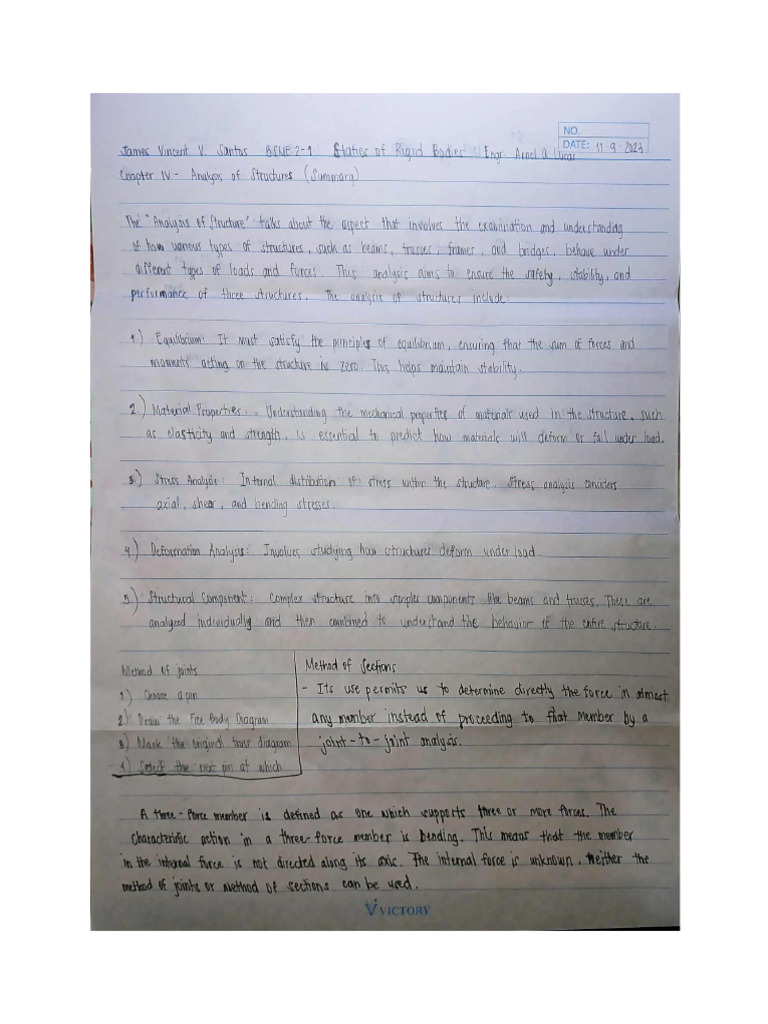 NO.
DATE: 11-9-2023
James Vincent V. Santos BSME 2-1 Statics of Rigid Bodies Engr. Arnel A. Lucas
Chapter IV - Analysis of Structures (Summary)
The "Analysis of Structure" talks about the aspect that involves the examination and understanding
of how various types of structures, such as beams, trusses, frames, and bridges, behave under
different types of loads and forces. This analysis aims to ensure the safety, stability, and
performance of three structures. The analysis of structures include:
1.) Equilibrium: It must satisfy the principles of equilibrium, ensuring that the sum of forces and
moments acting on the structure is zero. This helps maintain stability.
2.) Material Properties: Understanding the mechanical properties of materials used in the structure, such
as elasticity and strength, is essential to predict how materials will deform or fail under load.
3.) Stress Analysis: Internal distribution of stress within the structure. Stress analysis considers
axial, shear, and bending stresses.
4.) Deformation Analysis: Involves studying how structures deform under load.
5.) Structural Component: Complex structure into simpler components like beams and trusses. These are
analyzed individually and then combined to understand the behavior of the entire structure.
Method of joints
1) Choose a pin
2) Draw the Free Body Diagram
3) Mark the original truss diagram
4) Select the next pin at which
Method of Sections
- Its use permits us to determine directly the force in almost
any member instead of proceeding to that member by a
joint-to-joint analysis.
A three-force member is defined as one which supports three or more forces. The
characteristic action in a three-force member is bending. This means that the member
in the internal force is not directed along its axis. The internal force is unknown, neither the
method of joints or method of sections can be used.
VICTORY